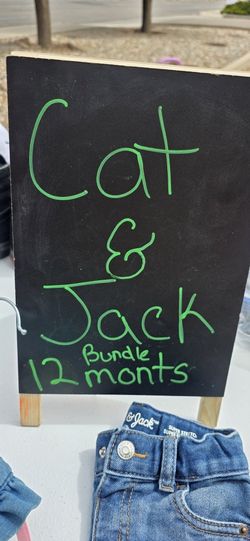 Cat
&
Jack
Bundle
12 monts
& Jack